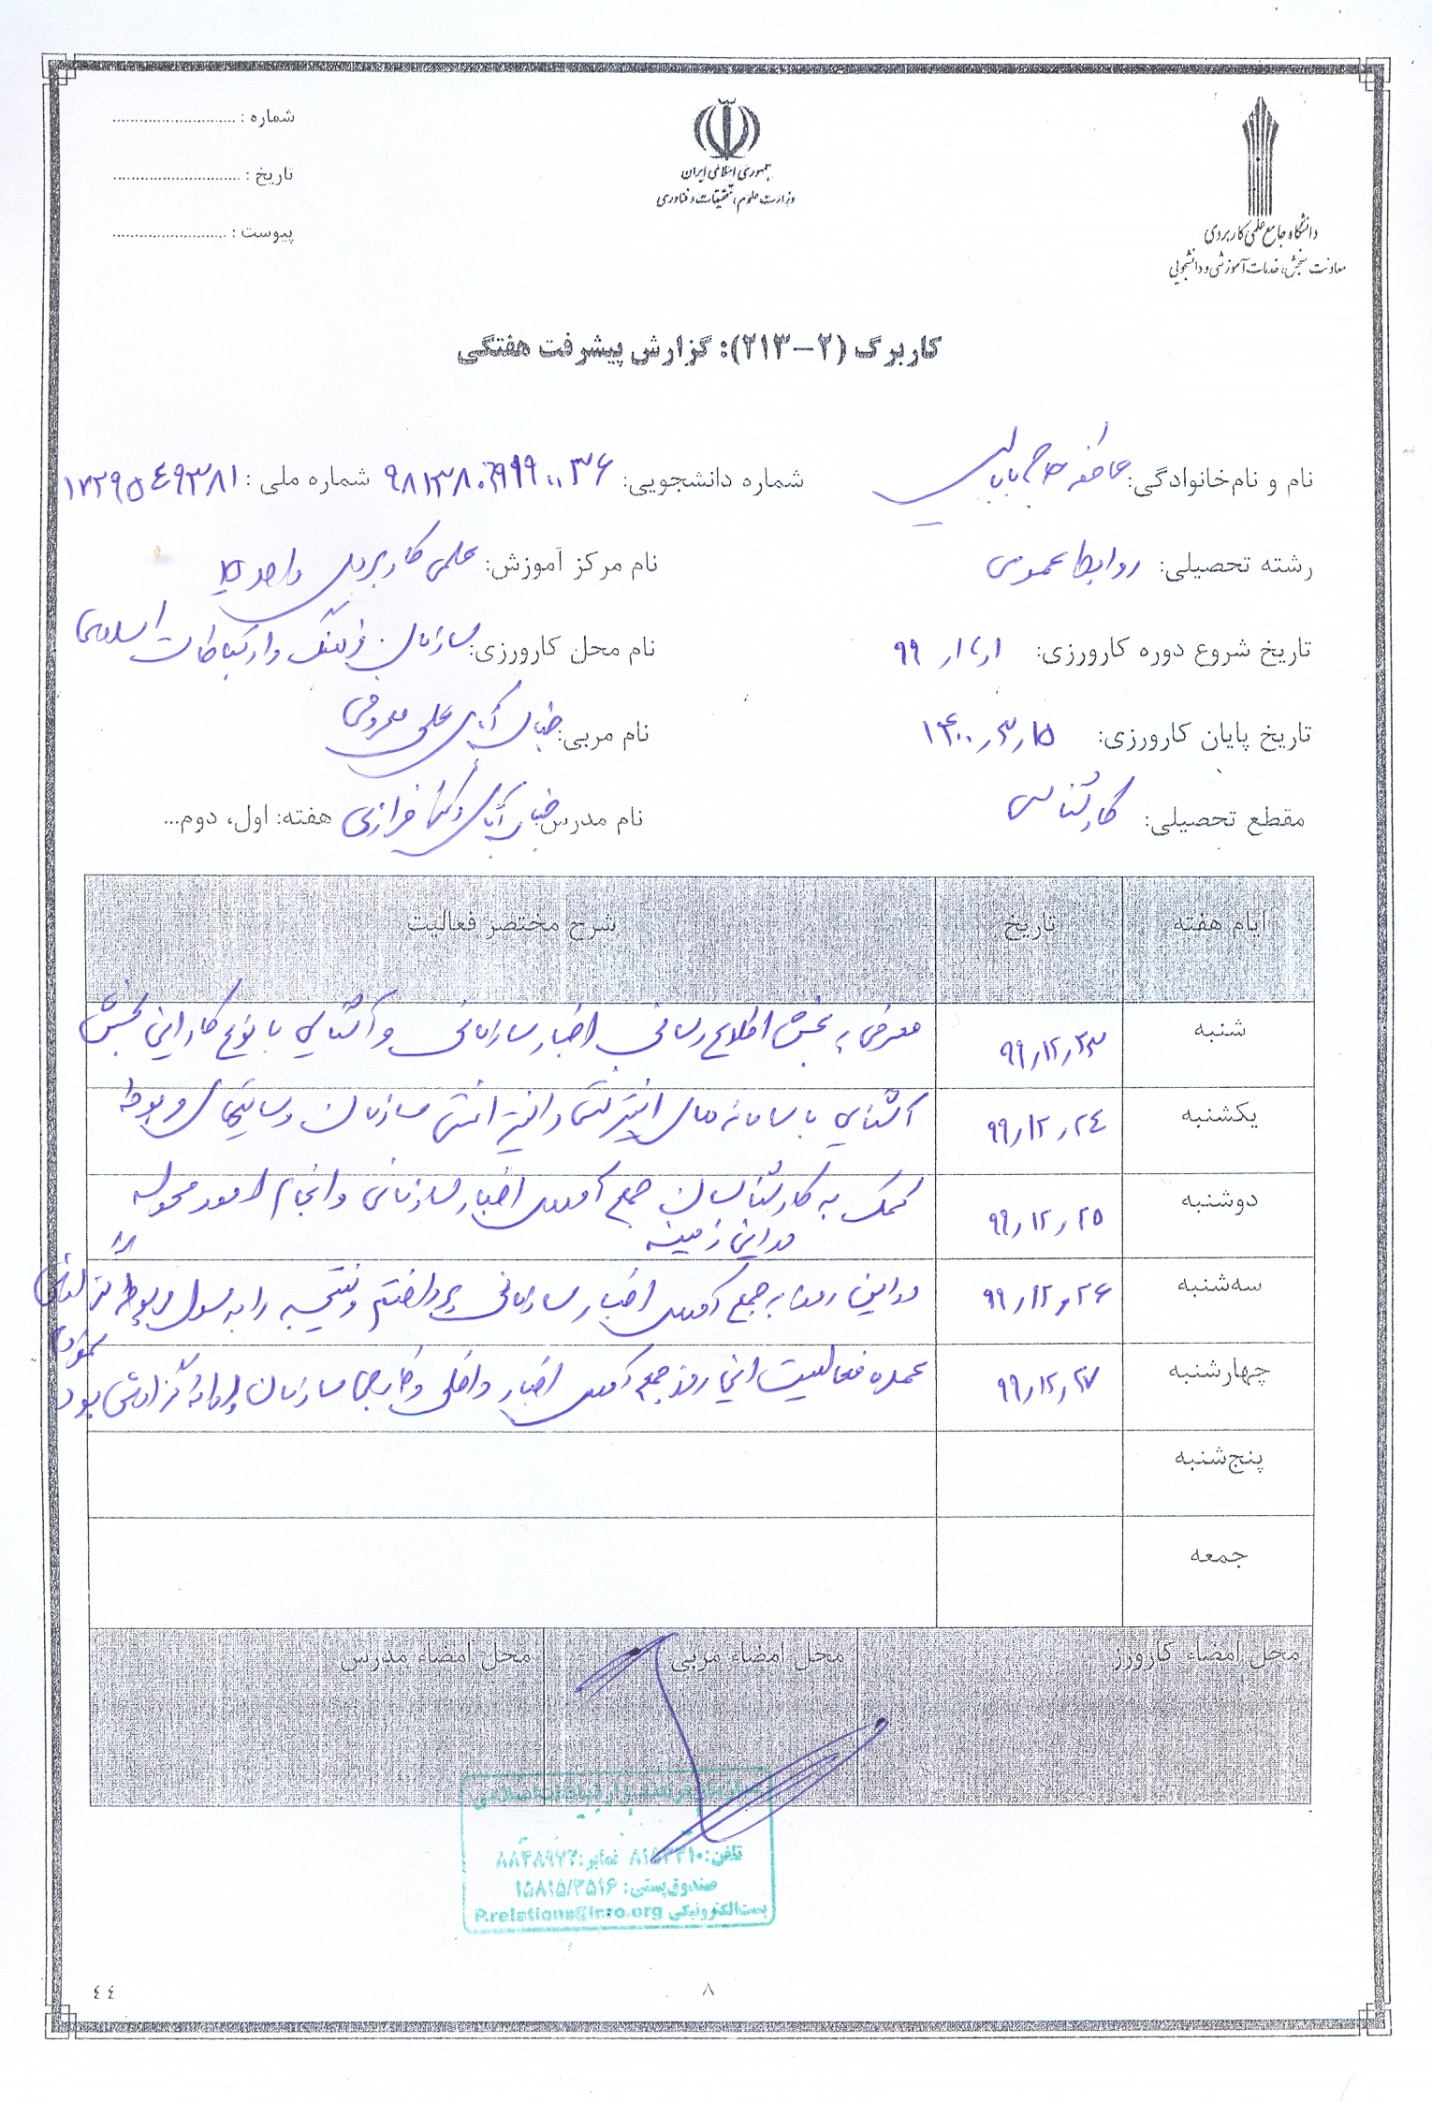 شماره : ...........................
تاریخ : ...........................
پیوست : ...........................
جمهوری اسلامی ایران
وزارت علوم، تحقیقات و فناوری
دانشگاه جامع علمی کاربردی
معاونت سنجش، خدمات آموزشی و دانشجویی
کاربرگ (۲-۲۱۳): گزارش پیشرفت هفتگی
نام و نام‌خانوادگی: عاطفه حاج بابایی شماره دانشجویی: شماره ملی :
رشته تحصیلی: روابط عمومی نام مرکز آموزش: علمی کاربردی واحد
تاریخ شروع دوره کارورزی: نام محل کارورزی: سازمان فرهنگ و ارتباطات اسلامی
تاریخ پایان کارورزی: ۱۴۰۰٫۳٫۱۵ نام مربی: جناب آقای علی معروفی
مقطع تحصیلی: کارشناسی نام مدرس: جناب آقای دکتر فرازی هفته: اول، دوم...
ایام هفته تاریخ شرح مختصر فعالیت
شنبه ۹۹٫۱۲٫۲۳ معرفی به بخش اطلاع رسانی اخبار سازمانی و آشنایی با نوع کار این بخش
یکشنبه ۹۹٫۱۲٫۲٤ آشنایی با سامانه های اینترنتی و اینترانتی سازمان و سایتهای مربوطه
دوشنبه ۹۹٫۱۲٫۲۵ کمک به کارشناسان جمع آوری اخبار سازمانی و انجام امور محوله
در این زمینه
سه‌شنبه ۹۹٫۱۲٫۲۶ در این روز به جمع آوری اخبار سازمانی پرداختم و نتیجه را به مسول مربوطه گزارش
نمودم
چهارشنبه ۹۹٫۱۲٫۲۷ عمده فعالیت این روز جمع آوری اخبار داخلی و خارجی سازمان و ارائه گزارش بود
پنج‌شنبه
جمعه
محل امضاء کارورز محل امضاء مربی محل امضاء مدرس
سازمان فرهنگ و ارتباطات اسلامی
تلفن: نمابر:
صندوق پستی: ۱۵۸۱۵/۳۵۱۶
پست الکترونیکی P.relations@icro.org
۸
٤٤